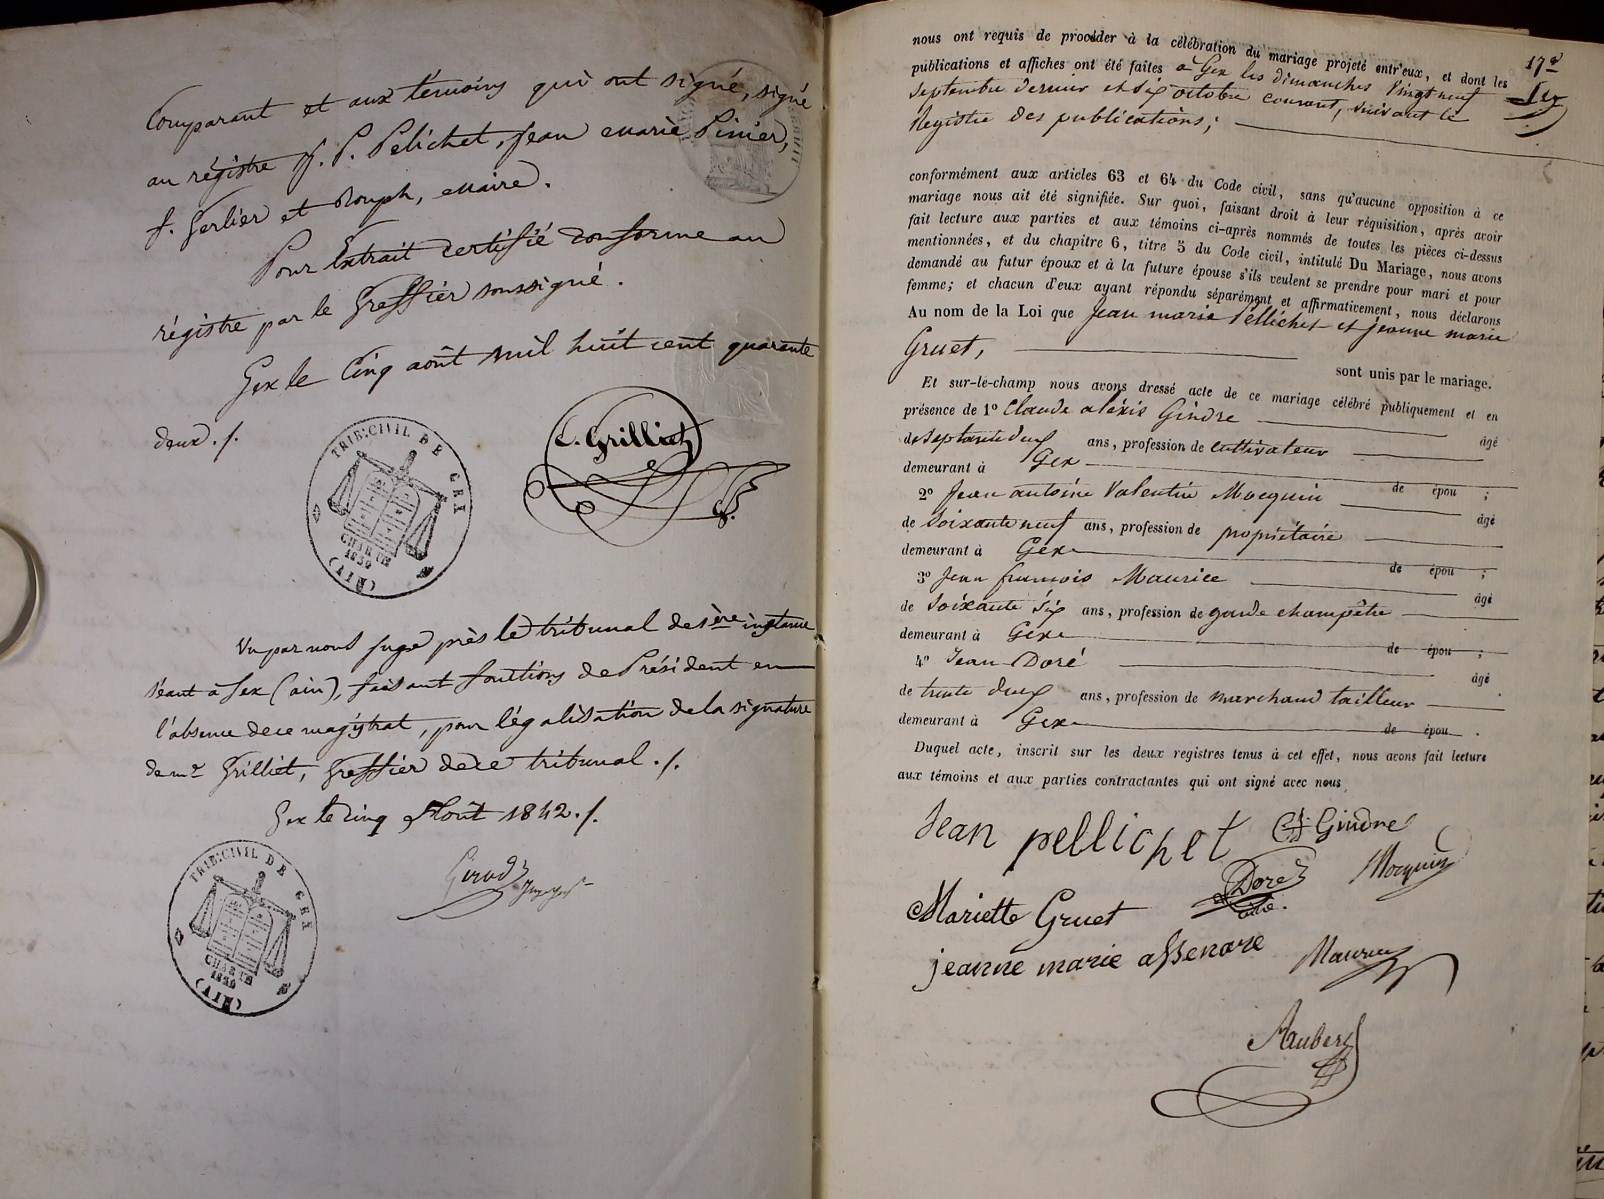 Comparant et aux témoins qui ont signé, signé
au régistre J. P. Pelichet, Jean marie Pinier,
f. Gerlier et Rouph, maire.
Pour Extrait certifié conforme au
régistre par le Greffier soussigné.
Gex le Cinq août mil huit cent quarante
deux ./.
C. Grilliet
TRIB: CIVIL DE GEX
CHARTE
1830
(AIN)
Vu par nous juge près le tribunal de 1ère instance
séant à Gex (ain), faisant fonctions de Président en
l'absence de ce magistrat, pour légalisation de la signature
de mr Grilliet, Greffier de ce tribunal ./.
Gex le cinq Août 1842 ./.
Girod
TRIB: CIVIL DE GEX
CHARTE
1830
(AIN)
17e
nous ont requis de procéder à la célébration du mariage projeté entr'eux, et dont les
publications et affiches ont été faites à Gex les dimanches vingt neuf
septembre dernier et six octobre courant, suivant le
Registre des publications;
conformément aux articles 63 et 64 du Code civil, sans qu'aucune opposition à ce
mariage nous ait été signifiée. Sur quoi, faisant droit à leur réquisition, après avoir
fait lecture aux parties et aux témoins ci-après nommés de toutes les pièces ci-dessus
mentionnées, et du chapitre 6, titre 5 du Code civil, intitulé Du Mariage, nous avons
demandé au futur époux et à la future épouse s'ils veulent se prendre pour mari et pour
femme; et chacun d'eux ayant répondu séparément et affirmativement, nous déclarons
Au nom de la Loi que Jean marie Pellichet et jeanne marie
Gruet,
sont unis par le mariage.
Et sur-le-champ nous avons dressé acte de ce mariage célébré publiquement et en
présence de 1o Claude aléxis Gindre âgé
de septante deux ans, profession de cultivateur
demeurant à Gex de épou ;
2o Jean antoine Valentin Mocquin âgé
de soixante neuf ans, profession de propriétaire
demeurant à Gex de épou ;
3o Jean françois Maurice âgé
de soixante six ans, profession de garde champêtre
demeurant à Gex de épou ;
4o Jean Doré âgé
de trente deux ans, profession de marchand tailleur
demeurant à Gex de épou .
Duquel acte, inscrit sur les deux registres tenus à cet effet, nous avons fait lecture
aux témoins et aux parties contractantes qui ont signé avec nous
Jean pellichet Gindre
Doré Mocquin
Mariette Gruet
jeanne marie assenare Maurice